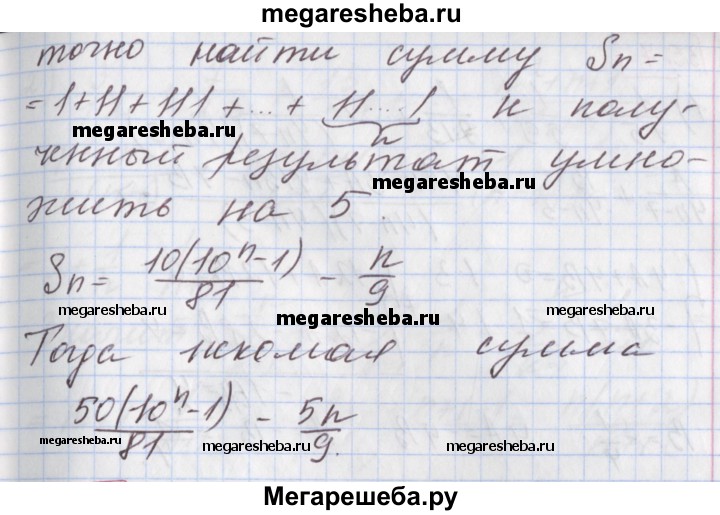 megaresheba.ru
точно найти сумму Sn=
=1+11+111+...+ 11...1 и полу-
n
megaresheba.ru
ченный результат умно-
megaresheba.ru
жить на 5.
Sn= 10(10ⁿ-1)/81 - n/9
megaresheba.ru megaresheba.ru megaresheba.ru
Тогда искомая сумма
50(10ⁿ-1)/81 - 5n/9.
megaresheba.ru megaresheba.ru megaresheba.ru
Мегарешеба.ру